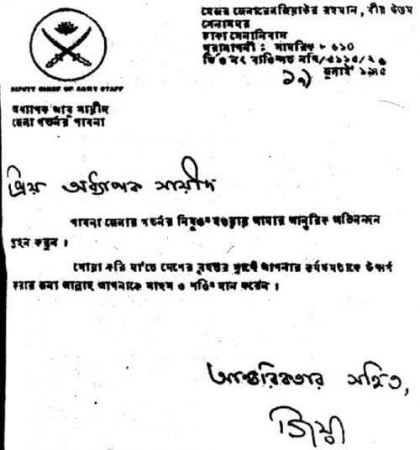 মেজর জেনারেল জিয়াউর রহমান, বীর উত্তম
সেনাসদর
ঢাকা সেনানিবাস
দূরালাপনী : সামরিক - ৬১০
১৯ জুলাই ১৯৭৫
DEPUTY CHIEF OF ARMY STAFF
অধ্যাপক আবু সায়ীদ
জেলা গভর্নর পাবনা
প্রিয় অধ্যাপক সায়ীদ
পাবনা জেলার গভর্নর নিযুক্ত হওয়ায় আমার আন্তরিক অভিনন্দন
গ্রহন করুন ।
দোয়া করি যাতে দেশের বৃহত্তর স্বার্থে আপনার কর্মক্ষমতাকে উৎসর্গ
করার জন্য আল্লাহ আপনাকে সাহস ও শক্তি দান করেন ।
আন্তরিকতার সহিত,
জিয়া